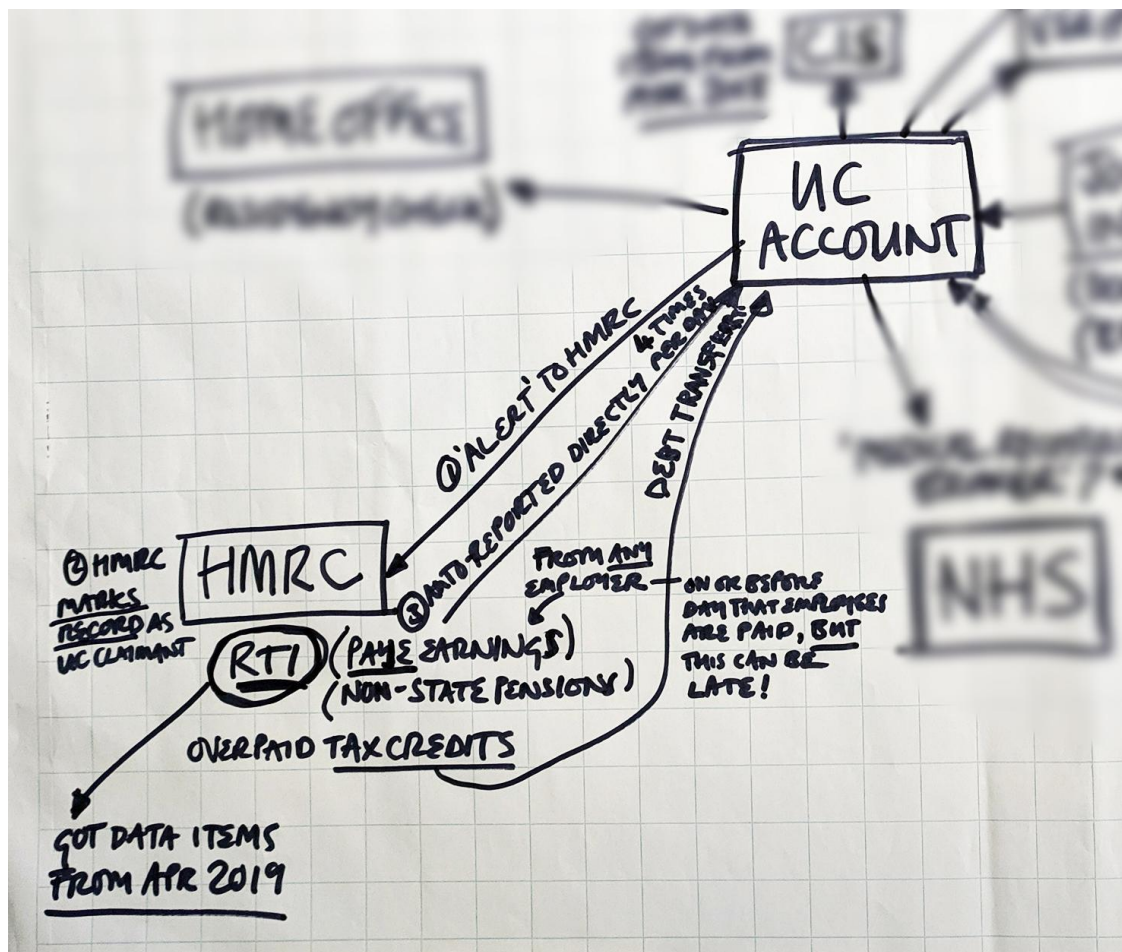 HOME OFFICE
CIS
UC
ACCOUNT
① 'ALERT' TO HMRC
4 TIMES
PER DAY
③ AUTO-REPORTED DIRECTLY
DEBT TRANSFERS
② HMRC
MARKS
RECORD AS
UC CLAIMANT
HMRC
RTI
(PAYE EARNINGS)
(NON-STATE PENSIONS)
FROM ANY
EMPLOYER
ON OR BEFORE
DAY THAT EMPLOYEES
ARE PAID, BUT
THIS CAN BE
LATE!
OVERPAID TAX CREDITS
GOT DATA ITEMS
FROM APR 2019
NHS